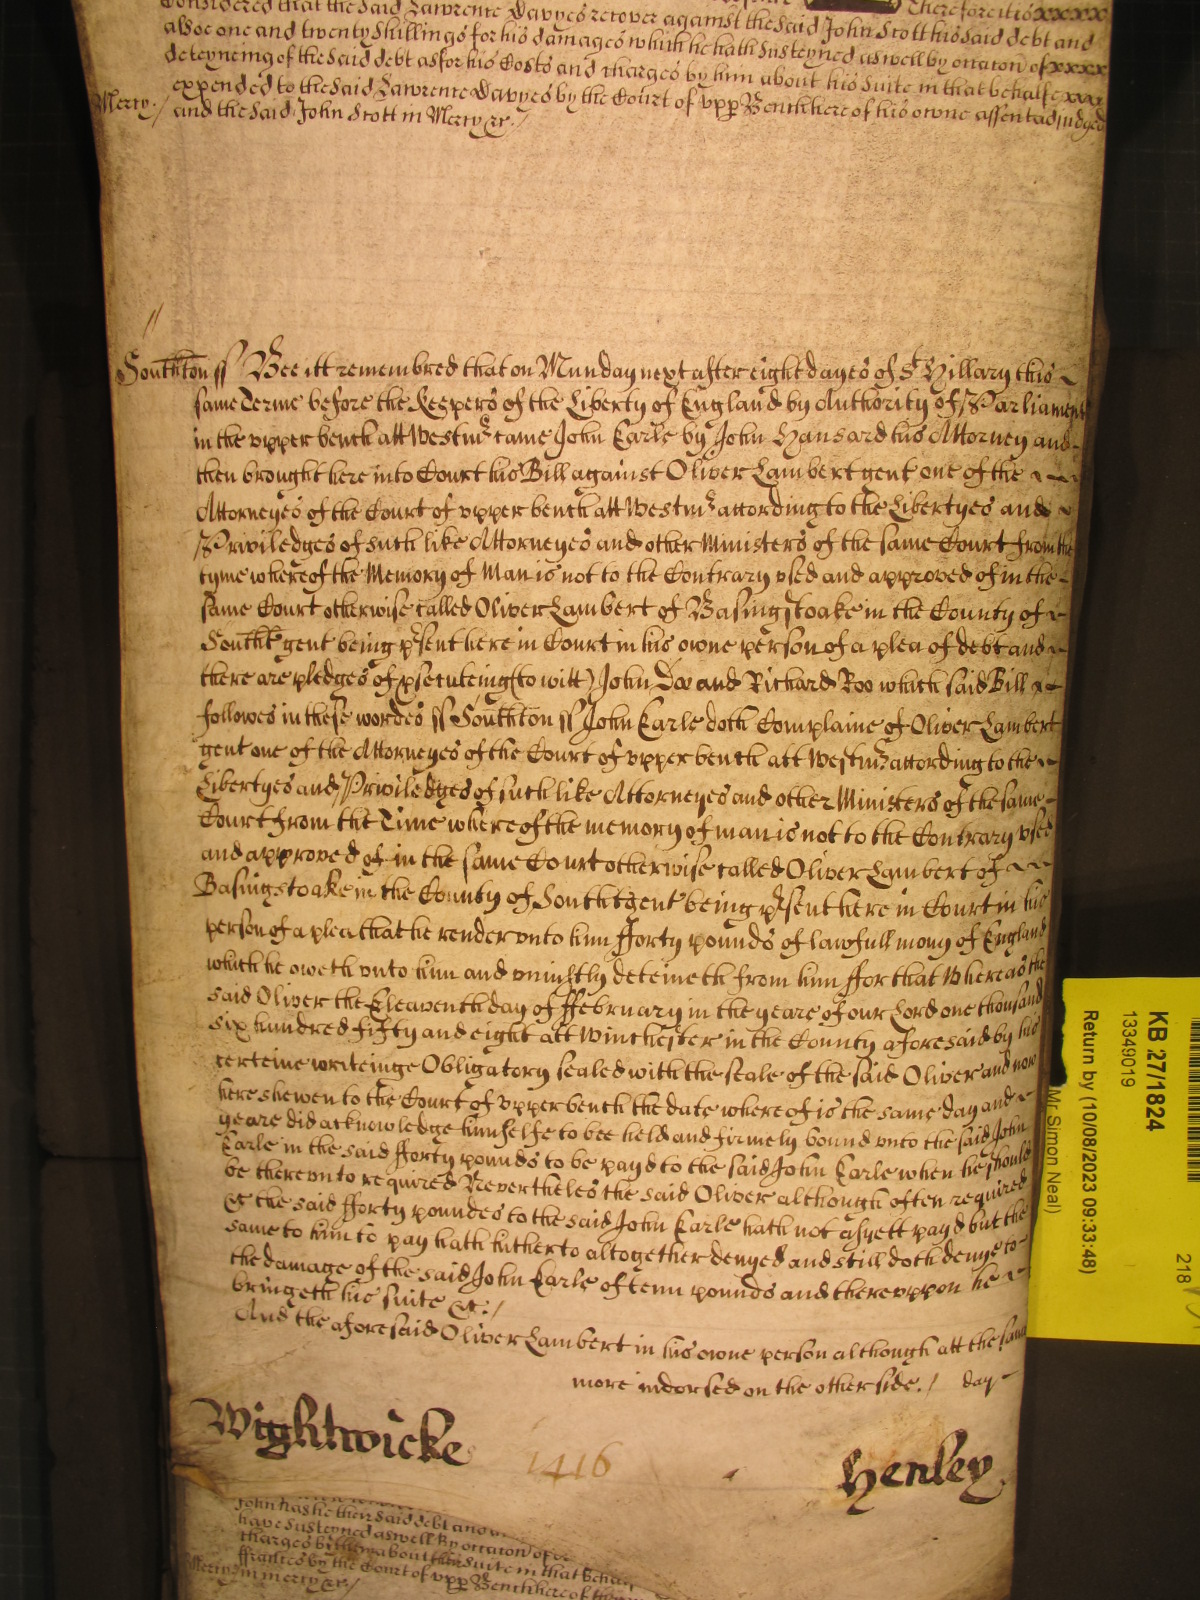 Considered that the said Lawrence Davyes recover against the said John Scott his said debt and
alsoe one and twenty shillings for his damages which he hath susteyned aswell by occacon of xxxx
deteyneing of the said debt as for his Costs and charges by him about his suite in that behalfe xxx
expended to the said Lawrence Davyes by the Court of upp Bench here of his owne assent adjudged
Mercy./ and the said John Scott in Mercy &c./
Southton ss Bee itt remembred that on Munday next after eight dayes of St Hillary this
same Terme before the Keepers of the Liberty of England by Authority of Parliament
in the upper bench att Westmr came John Earle by John Hansard his Attorney and
then brought here into Court his Bill against Oliver Lambert gent one of the
Attorneyes of the Court of upper bench att Westmr according to the Libertyes and
Priviledges of such like Attorneyes and other Ministers of the same Court from the
tyme whereof the Memory of Man is not to the Contrary used and approved of in the
same Court otherwise called Oliver Lambert of Basingstoake in the County of
Southt gent being psent here in Court in his owne person of a plea of debt and
there are pledges of psecuteing (to witt) John Doo and Richard Roo which said Bill
followes in these wordes ss Southton ss John Earle doth Complaine of Oliver Lambert
gent one of the Attorneyes of the Court of upper bench att Westmr according to the
Libertyes and Priviledges of such like Attorneyes and other Ministers of the same
Court from the Time whereof the memory of man is not to the Contrary used
and approved of in the same Court otherwise called Oliver Lambert of
Basingstoake in the County of Southt gent being psent here in Court in his
person of a plea that he render unto him fforty pounds of lawfull mony of England
which he oweth unto him and uniustly deteineth from him ffor that Whereas the
said Oliver the Eleaventh day of ffebruary in the yeare of our Lord one thousand
six hundred fifty and eight att Winchester in the County aforesaid by his
certeine writeinge Obligatory sealed with the seale of the said Oliver and now
here shewen to the Court of upper bench the date whereof is the same day and
yeare did acknowledge himselfe to bee held and firmely bound unto the said John
Earle in the said fforty pounds to be payd to the said John Earle when he should
be thereunto required Neverthelos the said Oliver although often required
&c the said fforty poundes to the said John Earle hath not as yett payd but the
same to him to pay hath hitherto altogether denyed and still doth denye to
the damage of the said John Earle of tenn pounds and thereuppon he
bringeth his suite &c:/
And the aforesaid Oliver Lambert in his owne person although att the same
more indorsed on the other side./ day
Wightwicke 1416 Henley
John has he their said debt and
have susteyned aswell by occacon of
charges by them about their suite in that behalf
by the Court of upp Bench here of
Mercy in mercy &c./
KB 27/1824
13349019
Return by (10/08/2023 09:33:48)
Mr Simon Neal)
218